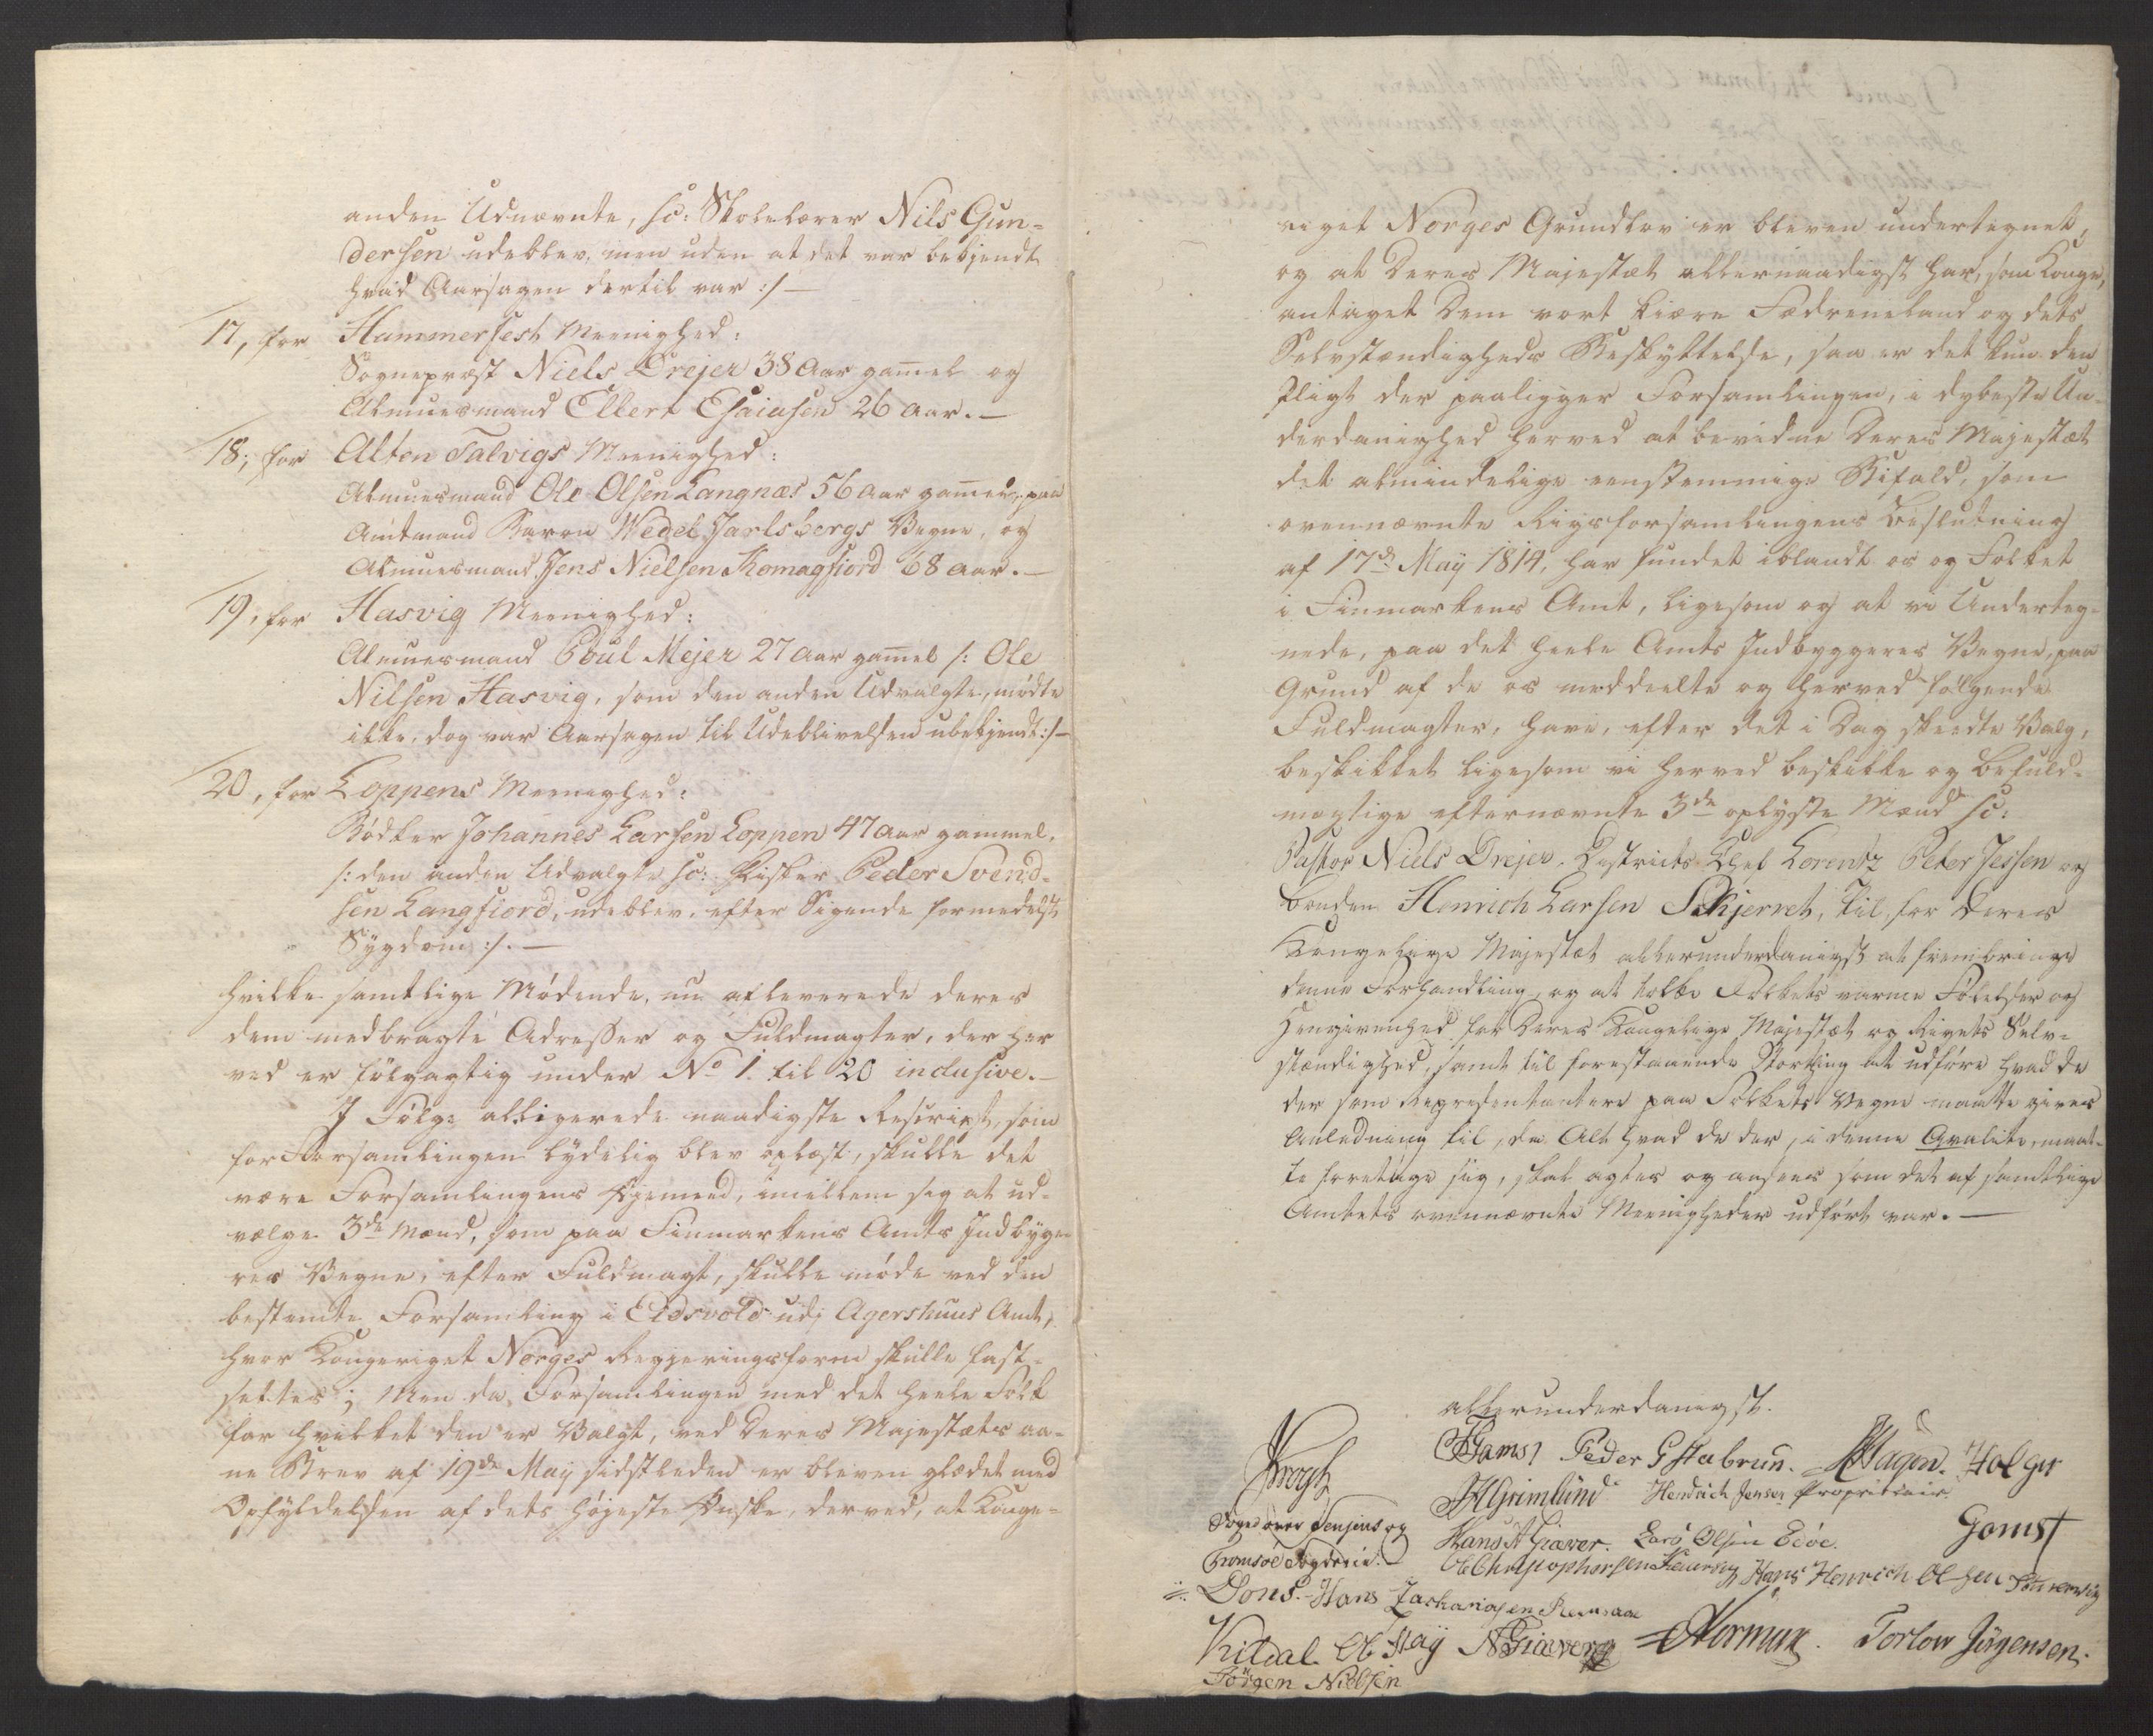 anden Udnævnte, sc: Skolelærer Nils Gun-
dersen udeblev, men uden at det var bekjendt
hvad Aarsagen dertil var :/ —
17, for Hammerfest Meenighed:
Sognepræst Niels Drejer 38 Aar gam̅el og
Almuesmand Ellert Esaiasen 26 Aar. —
18, for Alten Talvigs Meenighed:
Almuesmand Ole Olsen Langnæs 56 Aar gam̅el, paa
Amtmand Baron Wedel Jarlsbergs Vegne, og
Almuesmand Jens Nielsen Komagfiord 68 Aar. —
19, for Hasvig Meenighed:
Almuesmand Poul Mejer 27 Aar gam̅el /: Ole
Nilsen Hasvig, som den anden Udvalgte, mødte
ikke, dog var Aarsagen til Udeblivelsen ubekjendt :/ —
20, for Loppens Meenighed:
Bødker Johannes Larsen Loppen 47 Aar gammel,
/: den anden Udvalgte sc: Fisker Peder Svend-
sen Langfiord, udeblev, efter Sigende formedelst
Sygdom :/. —
Hvilke samtlige Mødende, nu afleverede deres
dem medbragte Adresser og Fuldmagter, der her
ved er følgagtig under No 1. til 20 inclusive. —
I Følge alligerede naadigste Rescript, som
for Forsamlingen lydelig blev oplæst, skulle det
være Forsamlingens Øjemed, imellem sig at ud-
vælge 3de Mænd, som paa Finmarkens Amts Indbygge-
res Vegne, efter Fuldmagt, skulle møde ved den
bestemte Forsamling i Eidsvold udi Agershuus Amt,
hvor Kongeriget Norges Regjeringsform skulle fast-
settes; Men da Forsamlingen med det heele Folk
for hvilket den er Valgt, ved Deres Majestæts aa-
ne Brev af 19de Maÿ sidstleden er bleven glædet med
Opfyldelsen af dets højeste Ønske, derved, at Konge-
riget Norges Grundlov er bleven undertegnet,
og at Deres Majestæt allernaadigst har, som Konge,
antaget Dem vort kiære Fædreneland og dets
Selvstændigheds Beskyttelse, saa er det kun den
Pligt der paaligger Forsamlingen, i dybeste Un-
derdanighed herved at bevidne Deres Majestæt
det almindelige eenstemmige Bifald, som
ovennævnte Rigsforsamlingens Beslutning
af 17de Maÿ 1814, har fundet iblandt os og Folket
i Finmarkens Amt, ligesom og at vi Underteg-
nede, paa det heele Amts Indbyggeres Vegne, paa
Grund af de os meddeelte og herved følgende
Fuldmagter, have, efter det i Dag skeedte Valg,
beskikket ligesom vi herved beskikke og befuld-
mægtige efternævnte 3de oplyste Mænd sc:
Pastor Niels Drejer, Districts Chef Lorentz Peter Jessen og
Bonden Henrich Larsen Schjerret, til, for Deres
Kongelige Majestæt allerunderdanigst at frembringe
denne Forhandling, og at tolke Folkets varme Følelser og
Hengivenhed for Deres Kongelige Majestæt og Rigets Selv-
stændighed, samt til forestaaende Storthing at udføre hvad de
der som Repræsentantere paa Folkets Vegne maatte gives
Anledning til, da Alt hvad de der, i denne Qvalite, maat-
te foretage sig, skal agtes og ansees som det af samtlige
Amtets ovennævnte Meenigheder udført var. —
allerunderdanigst.
Krogh Hans Peder G Stabrun. Hagen. Holger
JHGrimlund Hendrich Jensen Proprietair
Foged over Senjens og Hans A Giæver. Lars Olsen Gamst
Tromsøe Fogderie. Ole Christophersen Hans Henrich Olsen
Dons. Hans Zachariasen
Kildal. Ol May NGiæver Norman. Torlow Jörgensen.
Jörgen Nielsen